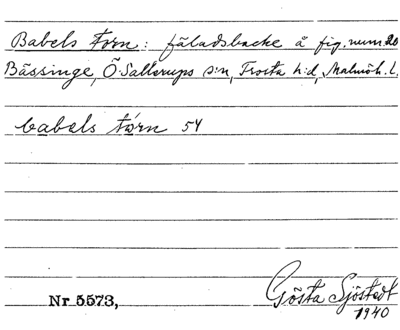 Babels torn: fäladsbacke å fig. num. 20
Bässinge, Ö. Sallerups s:n, Frosta h:d, Malmöh. l.
babals tɷrn 54
Nr 5573,
Gösta Sjöstedt
1940